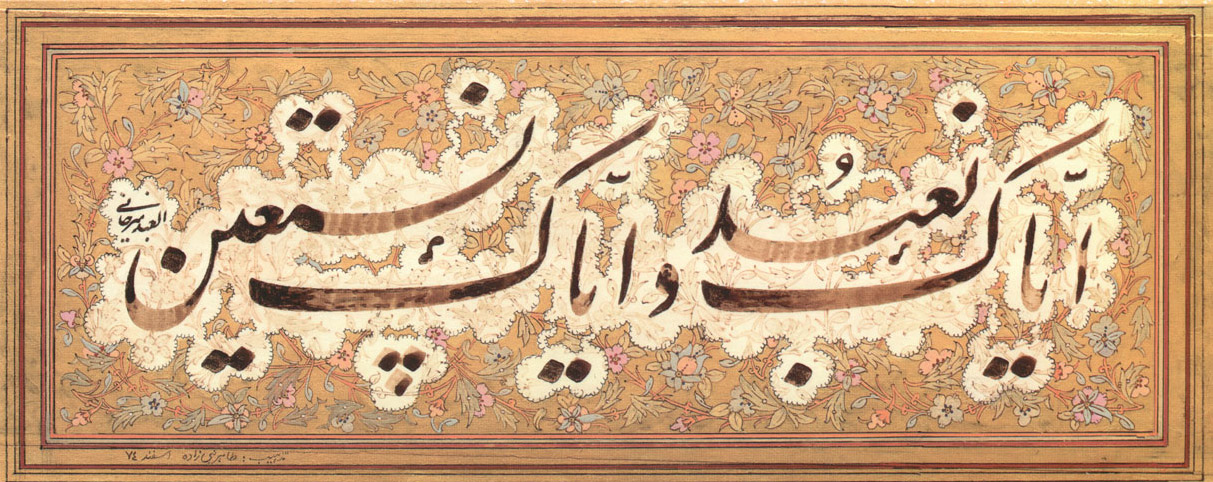 ایّاک نعبدُ و ایّاک نستعین
العبد میرخانی
تذهیب: طاهری‌زاده اسفند ۷۴